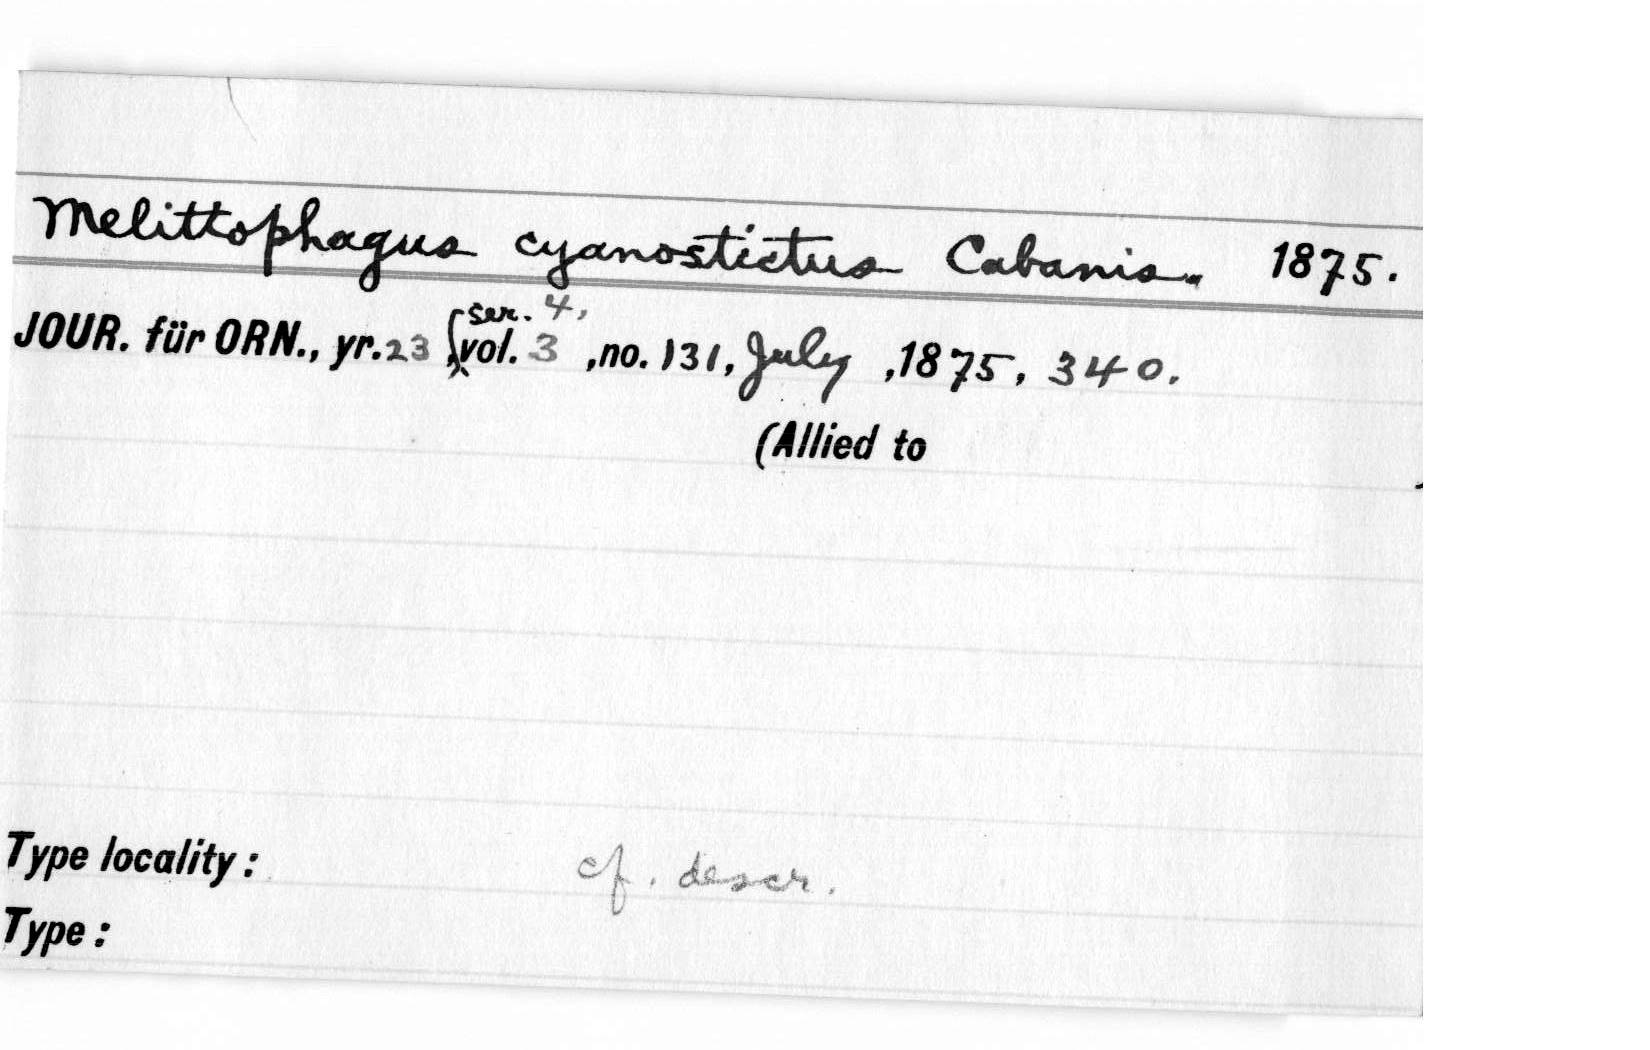 Melittophagus cyanostictus Cabanis. 1875.
JOUR. für ORN., yr. 23 (ser. 4, vol. 3 ,no. 131, July ,1875, 340.
(Allied to )
Type locality: cf. descr.
Type: